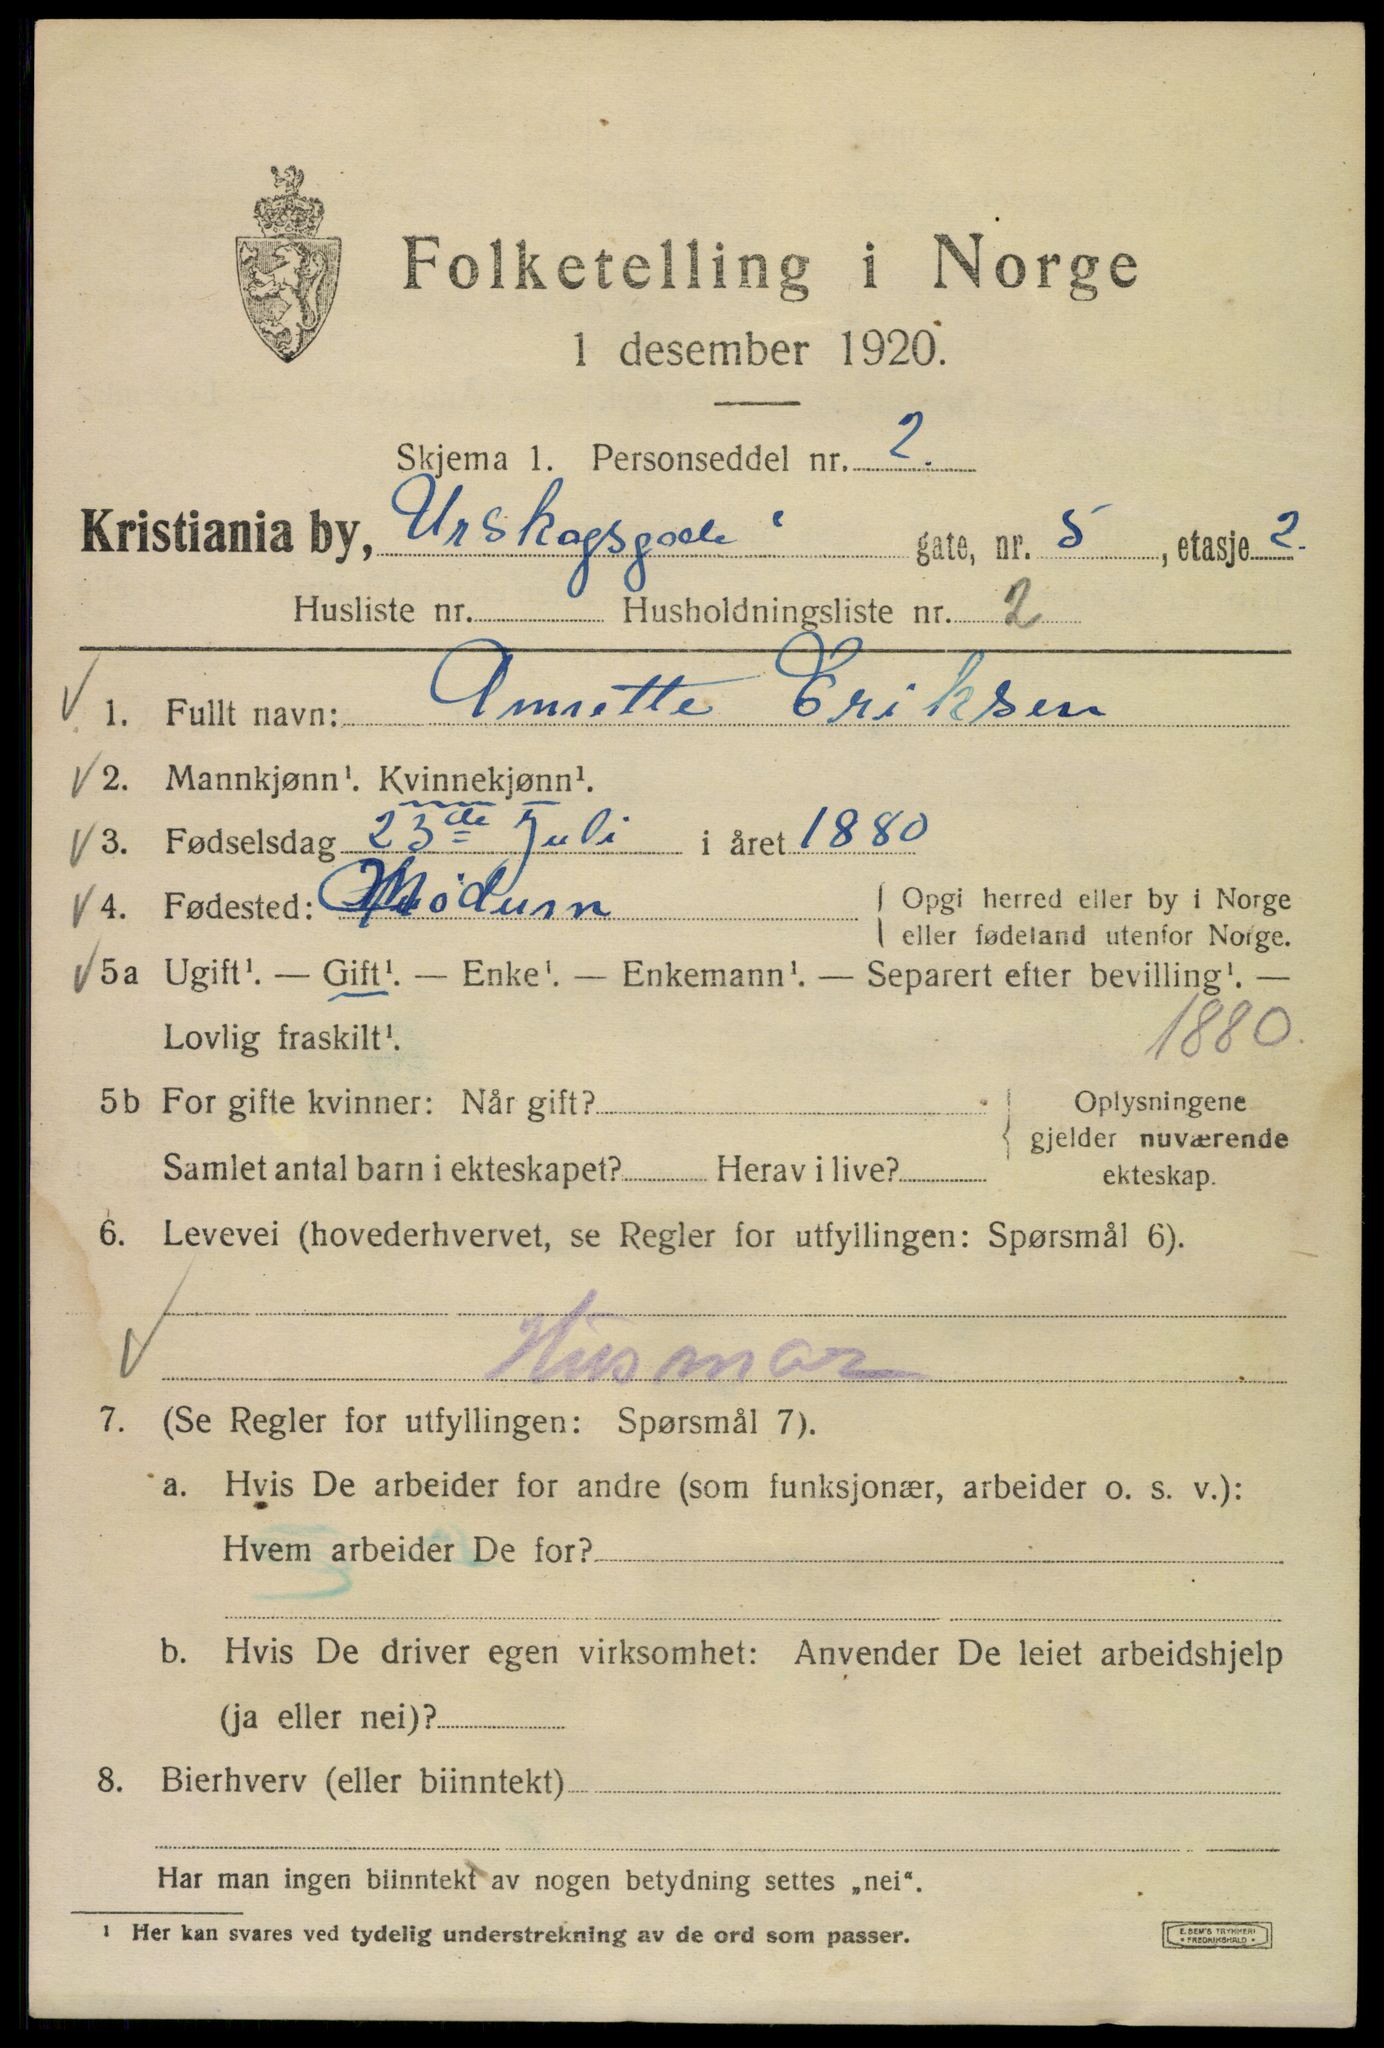 Folketelling i Norge
1 desember 1920.
Skjema 1. Personseddel nr. 2.
Kristiania by, Urskogsgade gate, nr. 5, etasje 2.
Husliste nr. Husholdningsliste nr. 2
1. Fullt navn: Annette Eriksen
2. Mannkjønn¹. Kvinnekjønn¹.
3. Fødselsdag 23de Juli i året 1880
4. Fødested: Modum { Opgi herred eller by i Norge
{ eller fødeland utenfor Norge.
5a Ugift¹. — Gift¹. — Enke¹. — Enkemann¹. — Separert efter bevilling¹. —
Lovlig fraskilt¹. 1880.
5b For gifte kvinner: Når gift? { Oplysningene
gjelder nuværende
Samlet antal barn i ekteskapet? Herav i live? ekteskap.
6. Levevei (hovederhvervet, se Regler for utfyllingen: Spørsmål 6).
Husmor
7. (Se Regler for utfyllingen: Spørsmål 7).
a. Hvis De arbeider for andre (som funksjonær, arbeider o. s. v.):
Hvem arbeider De for?
b. Hvis De driver egen virksomhet: Anvender De leiet arbeidshjelp
(ja eller nei)?
8. Bierhverv (eller biinntekt)
Har man ingen biinntekt av nogen betydning settes „nei“.
¹ Her kan svares ved tydelig understrekning av de ord som passer.
E. SEM'S TRYKKERI
• FREDRIKSHALD •